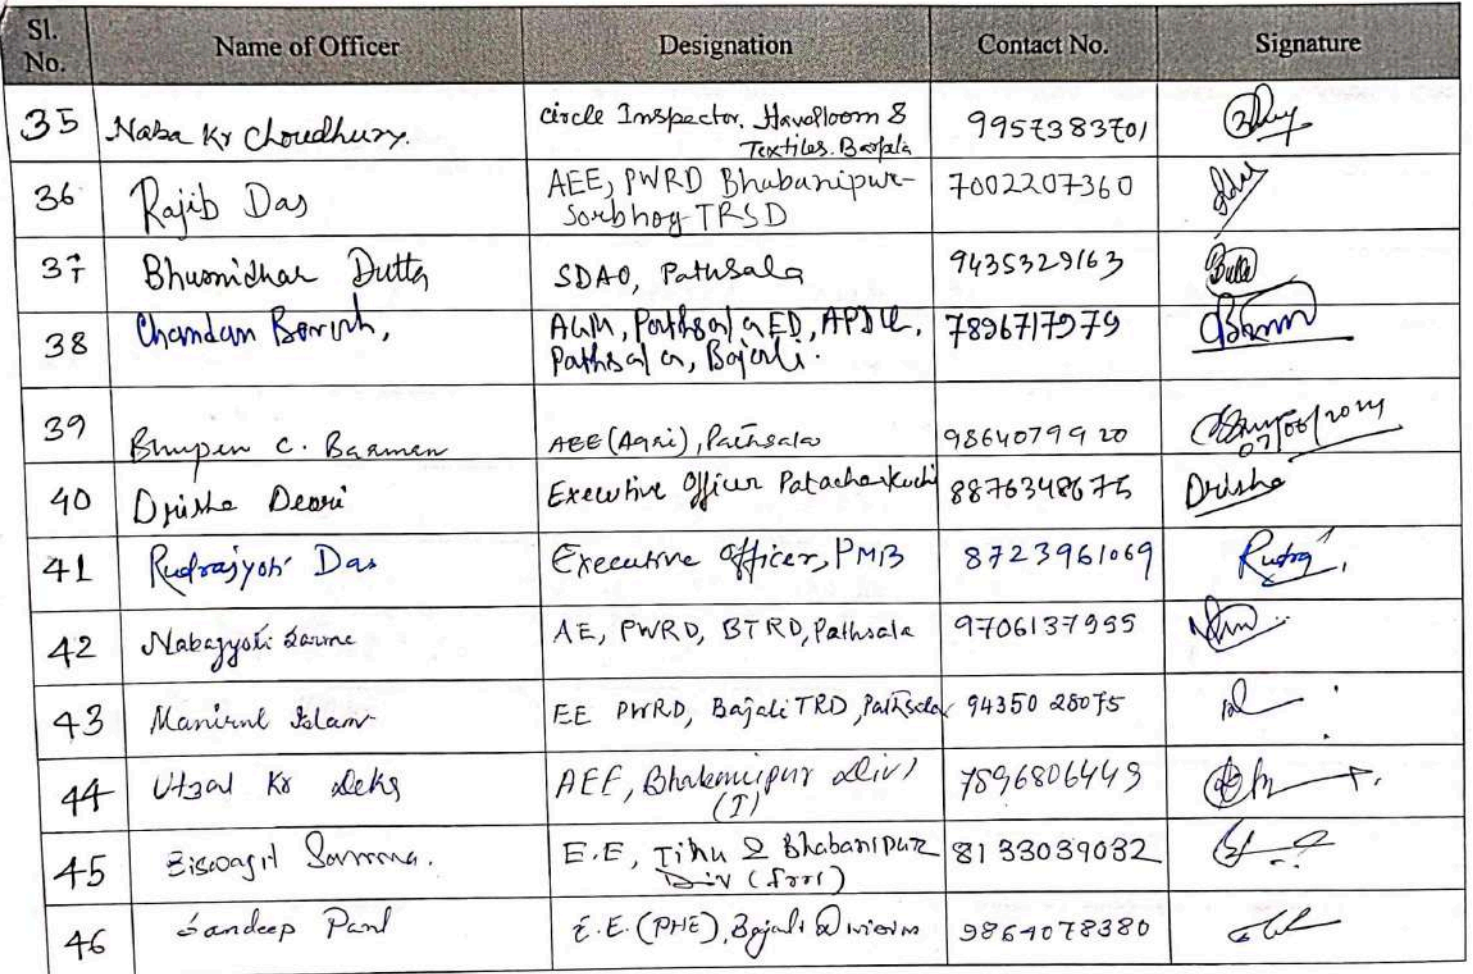 Sl. No. Name of Officer Designation Contact No. Signature
35 Naba Kr Choudhury. Circle Inspector. Handloom &
Textiles. Barpeta 9957383701
36 Rajib Das AEE, PWRD Bhabanipur-
Sorbhog TRSD 7002207360
37 Bhumidhar Dutta SDAO, Pathsala 9435329163
38 Chandan Boruah, AGM, Pathsala ED, APDCL,
Pathsala, Bajali. 7896717979
39 Bhupen C. Barman AEE (Agri), Pathsala 9864079920 07/06/2024
40 Drisha Deori Executive Officer Patacharkuchi 8876348675 Drisha
41 Rudrajyoti Das Executive Officer, PMB 8723961069 Rudra
42 Nabajyoti Sarma AE, PWRD, BTRD, Pathsala 9706137955
43 Manirul Islam EE PWRD, Bajali TRD, Pathsala 94350 28075
44 Utpal Kr Deka AEE, Bhabanipur Divn
(I) 7896806449
45 Biswajit Sarma. E.E, Tihu & Bhabanipur
Div (Irri) 8133039032
46 Sandeep Paul E.E. (PHE), Bajali Division 9864078380